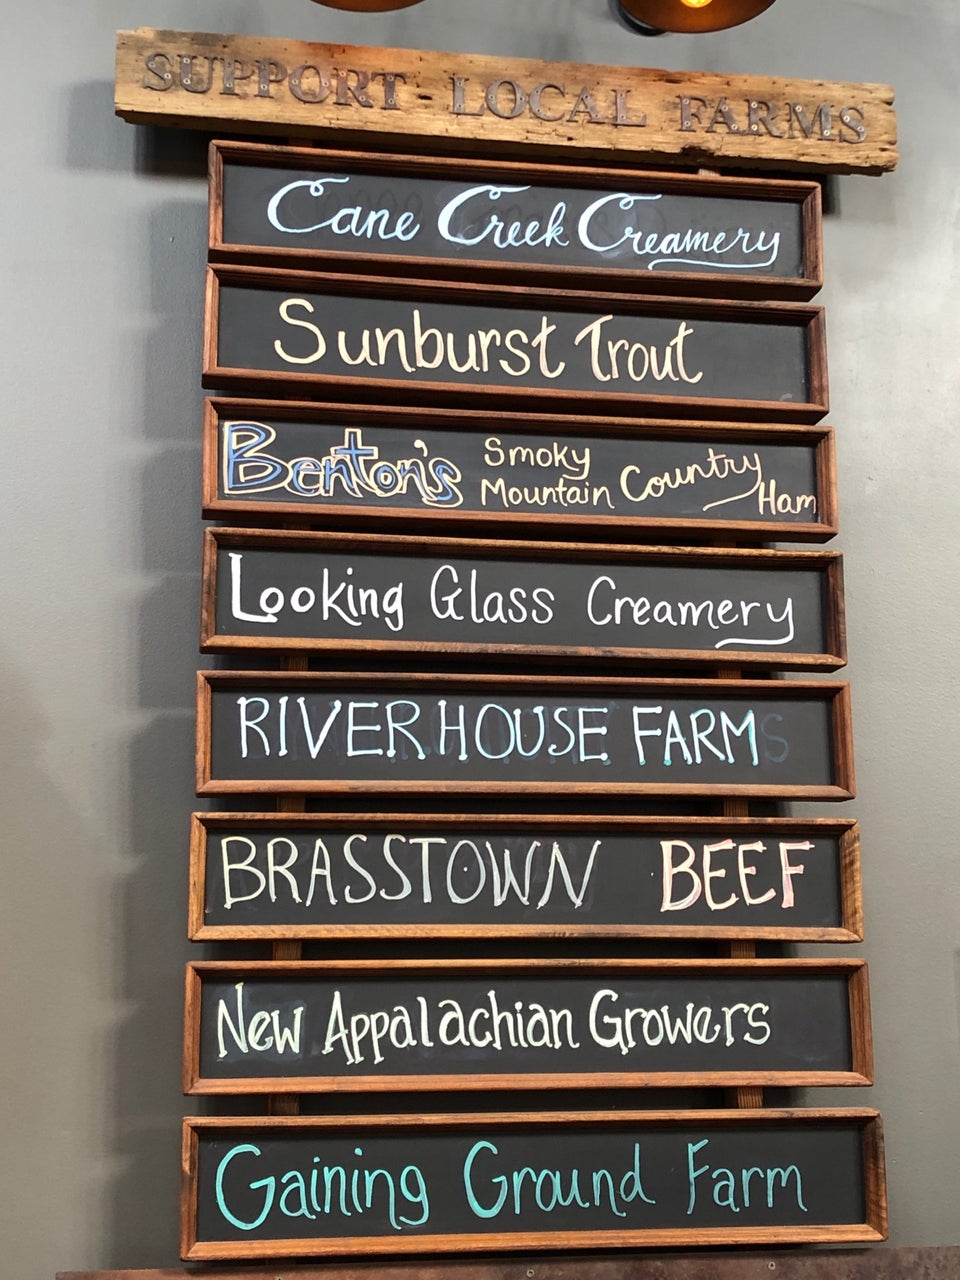 SUPPORT LOCAL FARMS
Cane Creek Creamery
Sunburst Trout
Benton's Smoky Mountain Country Ham
Looking Glass Creamery
RIVERHOUSE FARMS
BRASSTOWN BEEF
New Appalachian Growers
Gaining Ground Farm